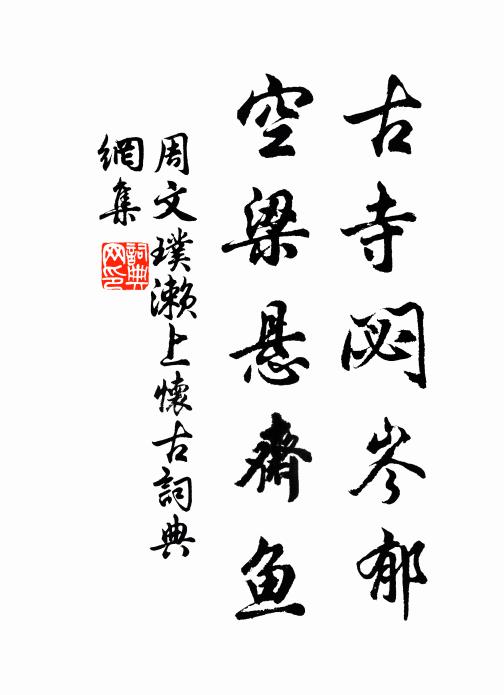 古寺閟岑郁
空梁悬斋鱼
周文璞濑上懷古詞典
網集
詞典
网印